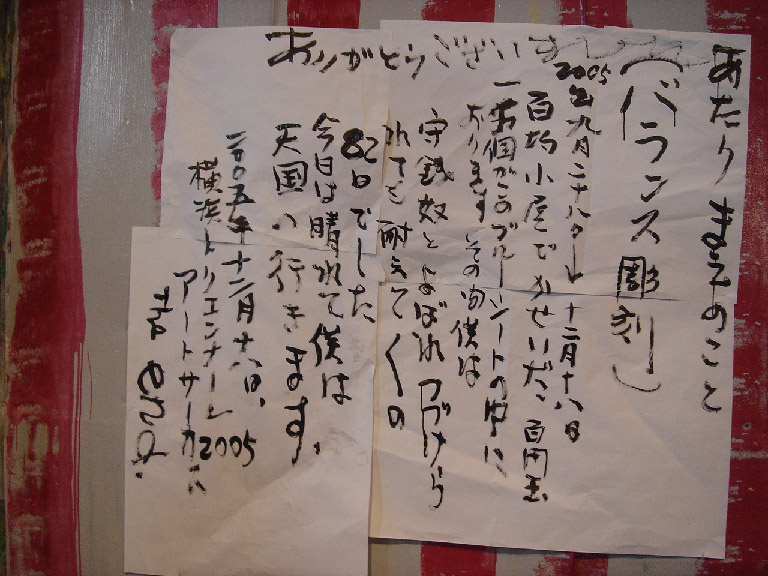 ありがとうございました
あたりまえのこと
(バランス彫刻)
2005年九月二十八 十二月十八日
百均小屋でかせいだ百円玉
個がこのブルーシートの中に
あります その間僕は
守銭奴とよばれつづけら
れても耐えてくの
82日でした
今日は晴れて僕は
天国へ行きます。
二〇〇五年十二月十八日、
横浜トリエンナーレ2005
アートサーカス
The end.